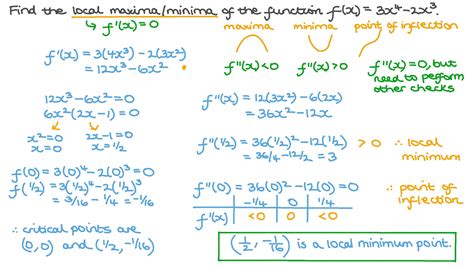 Find the local maxima/minima of the function f(x) = 3x⁴-2x³.
↳ f'(x)=0
maxima minima point of inflection
f''(x)<0 f''(x)>0 f''(x)=0, but need to perform other checks
f'(x) = 3(4x³) - 2(3x²)
= 12x³ - 6x²
12x³ - 6x² = 0
6x²(2x - 1) = 0
x² = 0 2x-1 = 0
x = 0 x = ½
f(0) = 3(0)⁴ - 2(0)³ = 0
f(½) = 3(½)⁴ - 2(½)³
= 3/16 - ¼ = -1/16
∴ critical points are
(0,0) and (½, -1/16)
f''(x) = 12(3x²) - 6(2x)
= 36x² - 12x
f''(½) = 36(½)² - 12(½) > 0 ∴ local minimum
= 36/4 - 12/2 = 3
f''(0) = 36(0)² - 12(0) = 0 ∴ point of inflection
-¼ 0 ¼
f'(x) <0 0 <0
(½, -1/16) is a local minimum point.